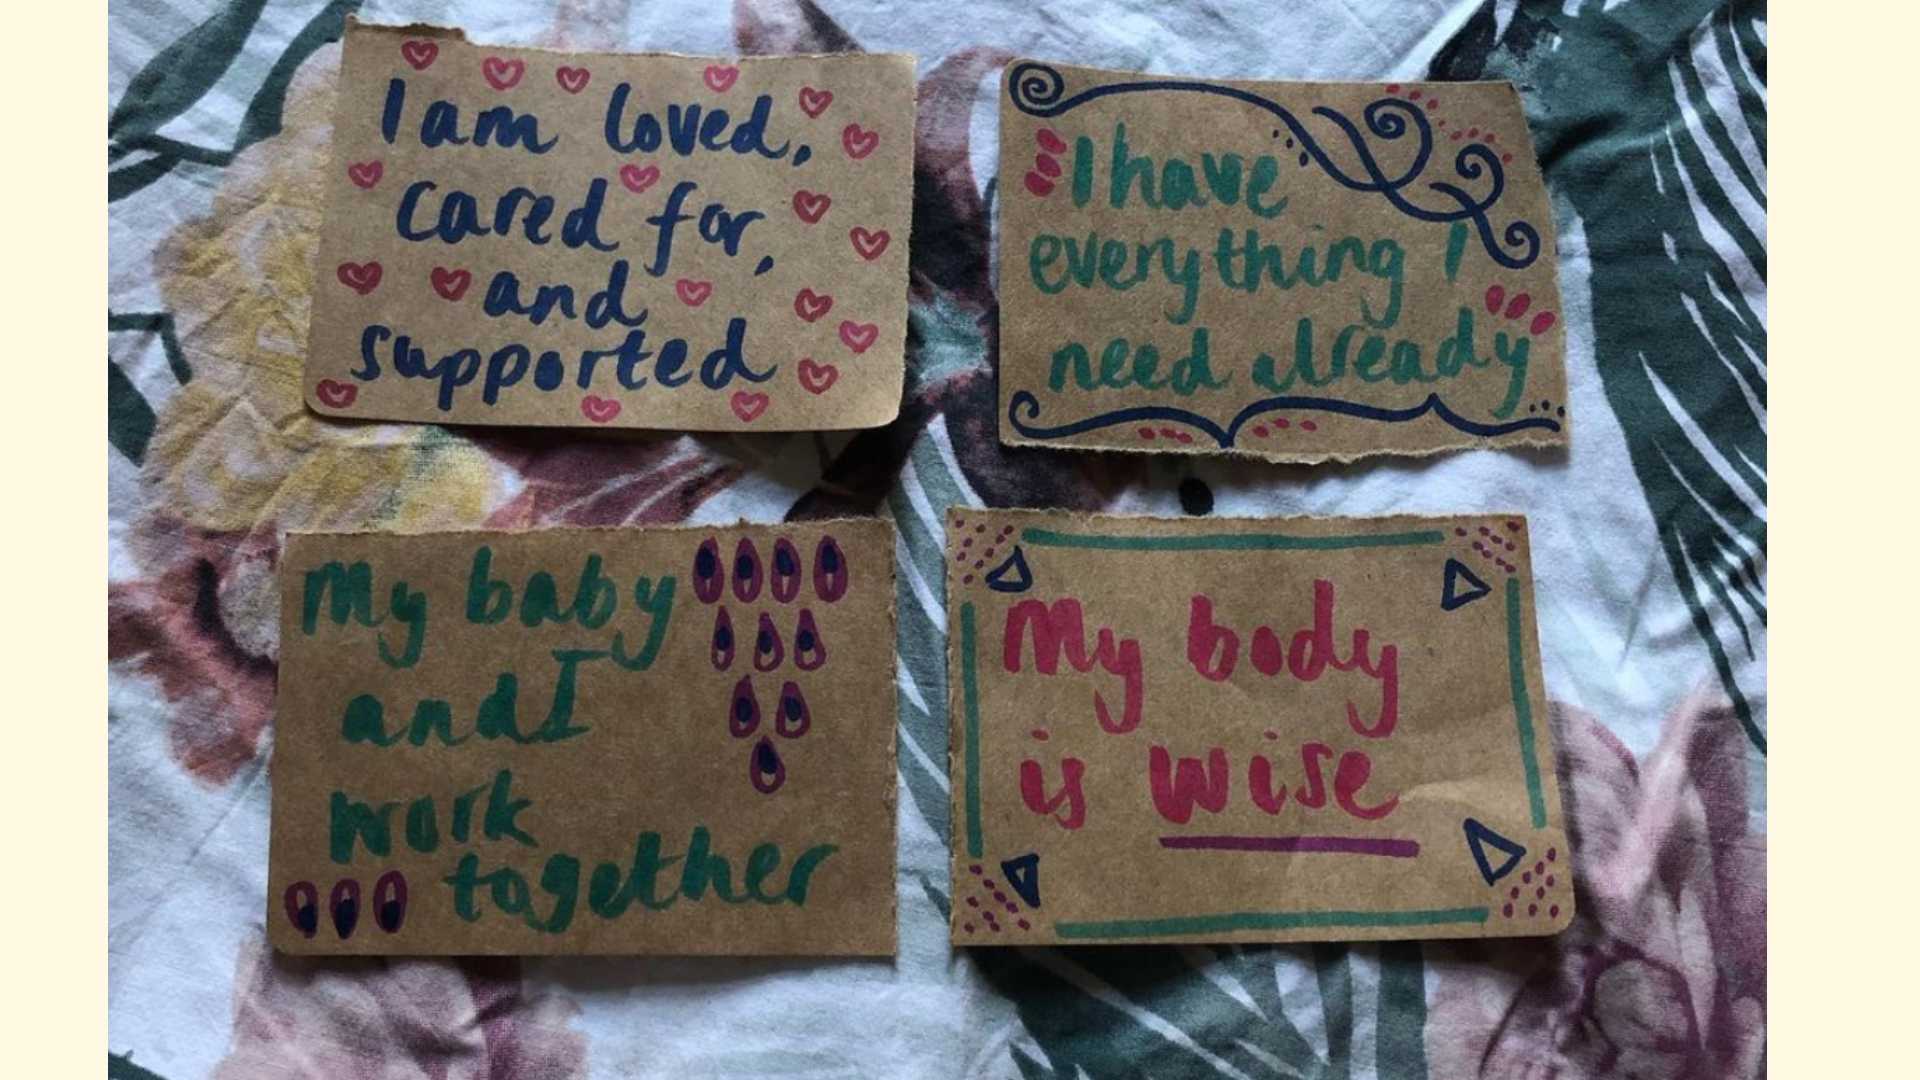 I am loved,
cared for,
and
supported
I have
everything I
need already
My baby
and I
work
together
My body
is wise